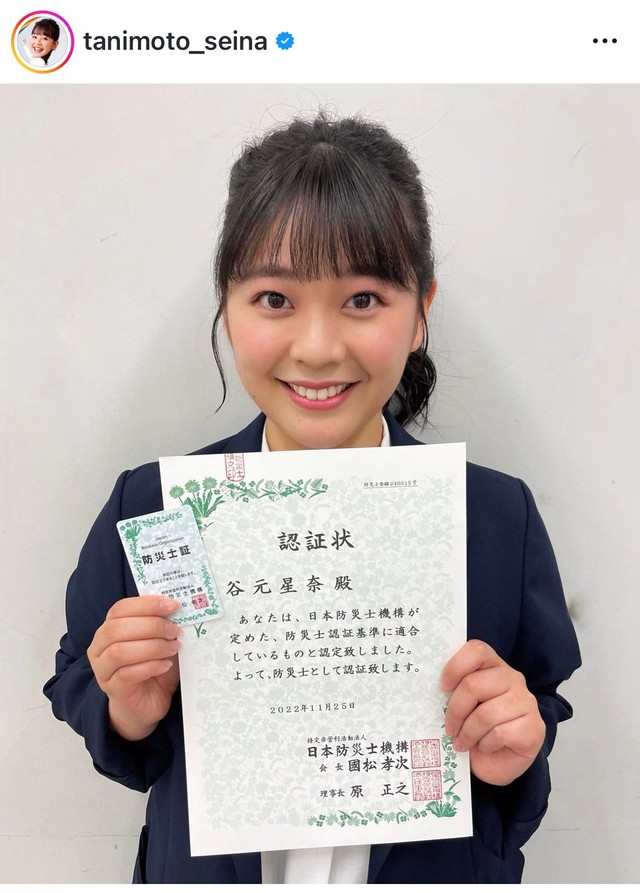 tanimoto_seina
防災士登録240515号
認証状
谷元星奈 殿
あなたは、日本防災士機構が
定めた、防災士認証基準に適合
しているものと認定致しました。
よって、防災士として認証致します。
2022年11月25日
特定非営利活動法人
日本防災士機構
会長 國松孝次
理事長 原 正之
Japan
Bousaisi Organization
防災士証
特定非営利活動法人
防災士機構